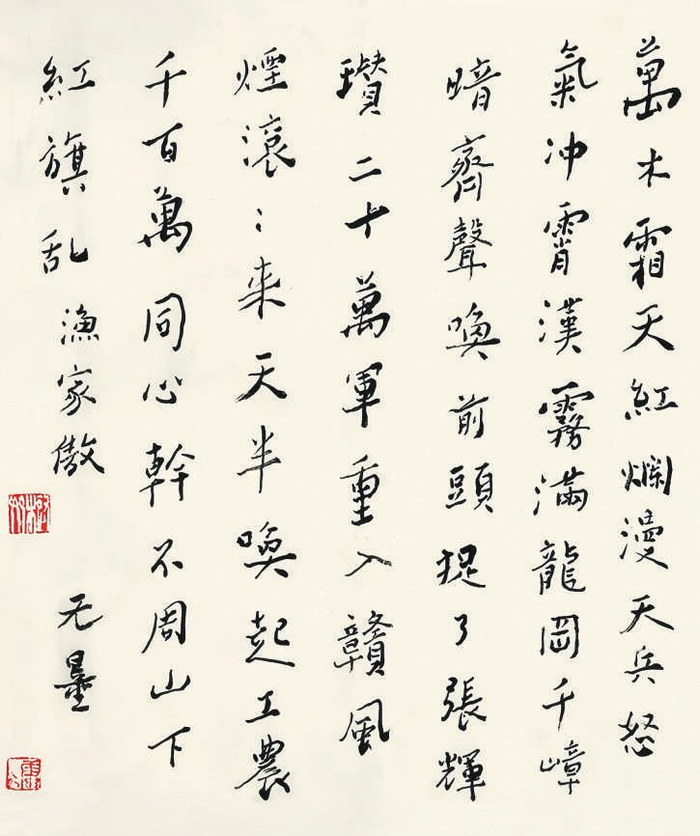 萬木霜天紅爛漫天兵怒
氣冲霄漢霧滿龍岡千嶂
暗齊聲喚前頭捉了張輝
瓚二十萬軍重入贛風
煙滾〻来天半喚起工農
千百萬同心幹不周山下
紅旗乱漁家傲
无